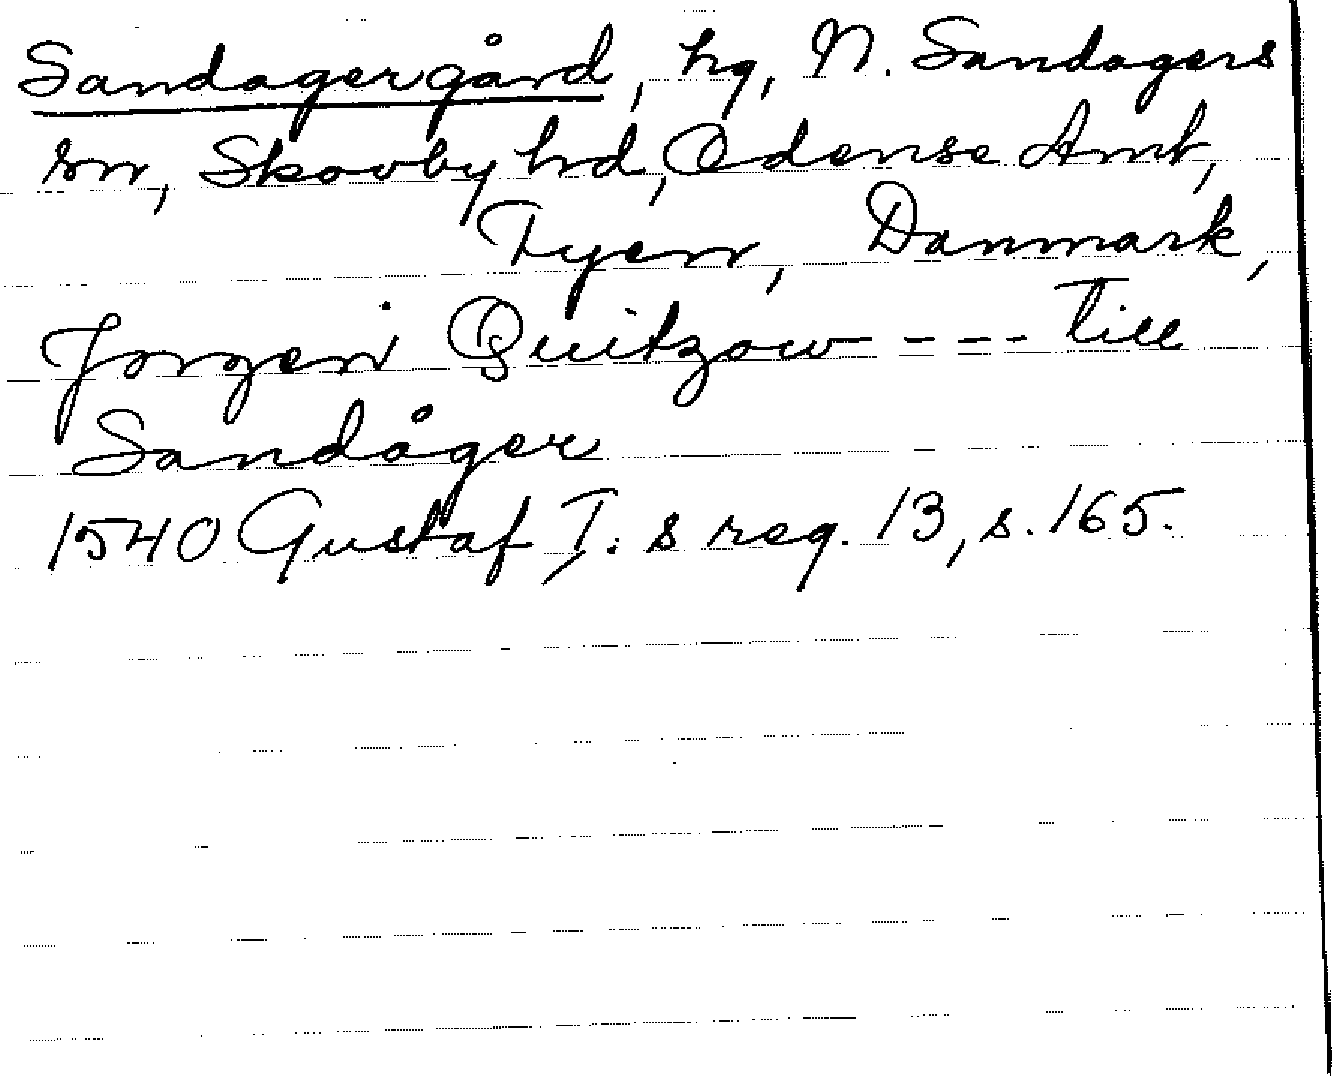 Sandagergård, hg, N. Sandagers
sn, Skovby hd, Odense Amt,
Fyen, Danmark,
Jorgen Quitzow - - - till
Sandåger
1540 Gustaf I:s reg. 13, s. 165.